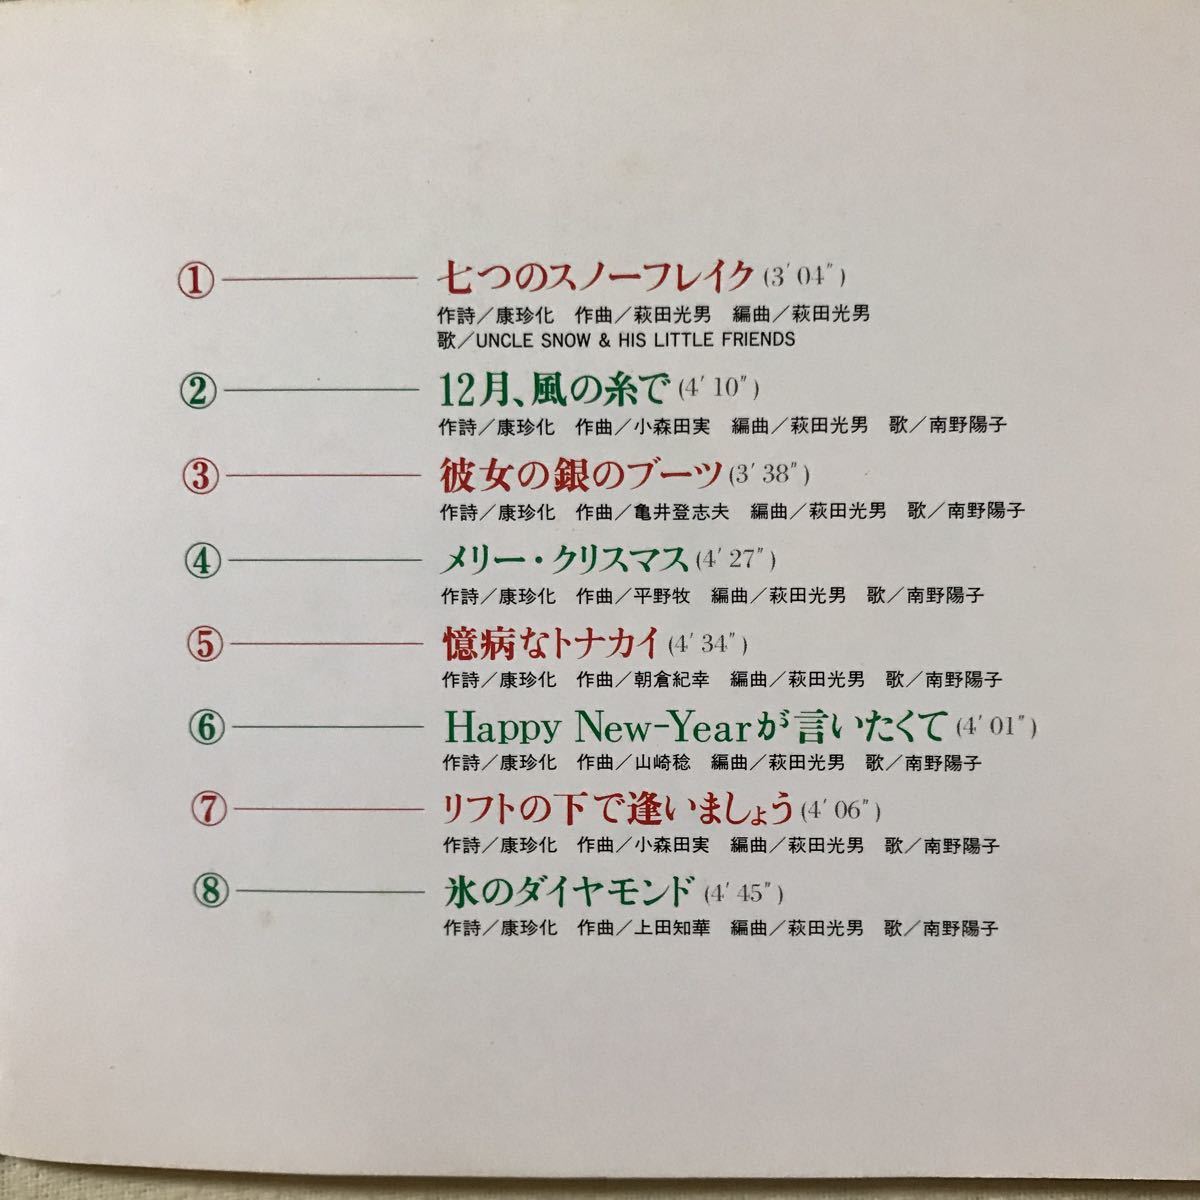 ① 七つのスノーフレイク (3′04″)
作詩／康珍化　作曲／萩田光男　編曲／萩田光男
歌／UNCLE SNOW & HIS LITTLE FRIENDS
② 12月、風の糸で (4′10″)
作詩／康珍化　作曲／小森田実　編曲／萩田光男　歌／南野陽子
③ 彼女の銀のブーツ (3′38″)
作詩／康珍化　作曲／亀井登志夫　編曲／萩田光男　歌／南野陽子
④ メリー・クリスマス (4′27″)
作詩／康珍化　作曲／平野牧　編曲／萩田光男　歌／南野陽子
⑤ 憶病なトナカイ (4′34″)
作詩／康珍化　作曲／朝倉紀幸　編曲／萩田光男　歌／南野陽子
⑥ Happy New-Yearが言いたくて (4′01″)
作詩／康珍化　作曲／山崎稔　編曲／萩田光男　歌／南野陽子
⑦ リフトの下で逢いましょう (4′06″)
作詩／康珍化　作曲／小森田実　編曲／萩田光男　歌／南野陽子
⑧ 氷のダイヤモンド (4′45″)
作詩／康珍化　作曲／上田知華　編曲／萩田光男　歌／南野陽子